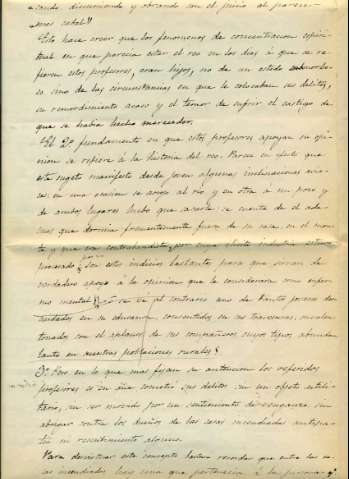 cando, discurriendo y obrando con el juicio al parecer
mas cabal."
Esto hace creer que los fenómenos de concentracion espiri-
tual en que parecia estar el reo en los dias á que se re-
fieren estos profesores, eran hijos, no de un estado
sino de las circunstancias en que le colocaban sus delitos,
su remordimiento acaso y el temor de sufrir el castigo de
que se habia hecho merecedor.
El 2º fundamento en que estos profesores apoyan su opi-
nion se refiere á la historia del reo. Parece en efecto que
este sugeto manifestó desde joven algunas inclinaciones
en una ocasion se arrojó al rio y en otra á un pozo y
de ambos lugares hubo que sacarle: se cuenta de él ade-
mas que dormia frecuentemente fuera de su casa, en el mon-
te y que era contrabandista, por cuya ilícita industria estuvo
procesado ¿Son estos indicios bastante para que sirvan de
verdadero apoyo á la opinion que le considerara como enfer-
mo mental? ¿No se vé al contrario uno de tantos jóvenes des-
cuidados en su educacion, consentidos en sus travesuras,
tonados con el aplauso de sus compañeros cuyos tipos abundan
tanto en nuestras poblaciones rurales?
3º Pero en lo que mas fijan su atencion los referidos
profesores es en que cometió sus delitos sin un objeto utili-
tario, sin ser movido por un sentimiento de venganza, sin
abrigar contra los dueños de las casas incendiadas antipa-
tía ni resentimiento alguno.
Para desvirtuar este concepto bastará recordar que entre las ca-
sas incendiadas hay una que pertenecia á la persona